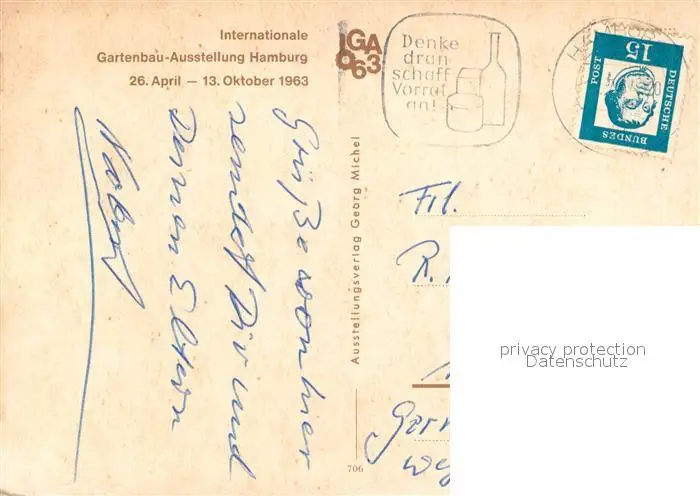 Internationale
Gartenbau-Ausstellung Hamburg
26. April — 13. Oktober 1963
IGA
63
Denke
dran
schaff
Vorrat
an!
15
POST
DEUTSCHE
BUNDES
Grüße von hier
sendet Dir und
Deinen Eltern
Ausstellungsverlag Georg Michel
706
Frl.
R.
privacy protection
Datenschutz